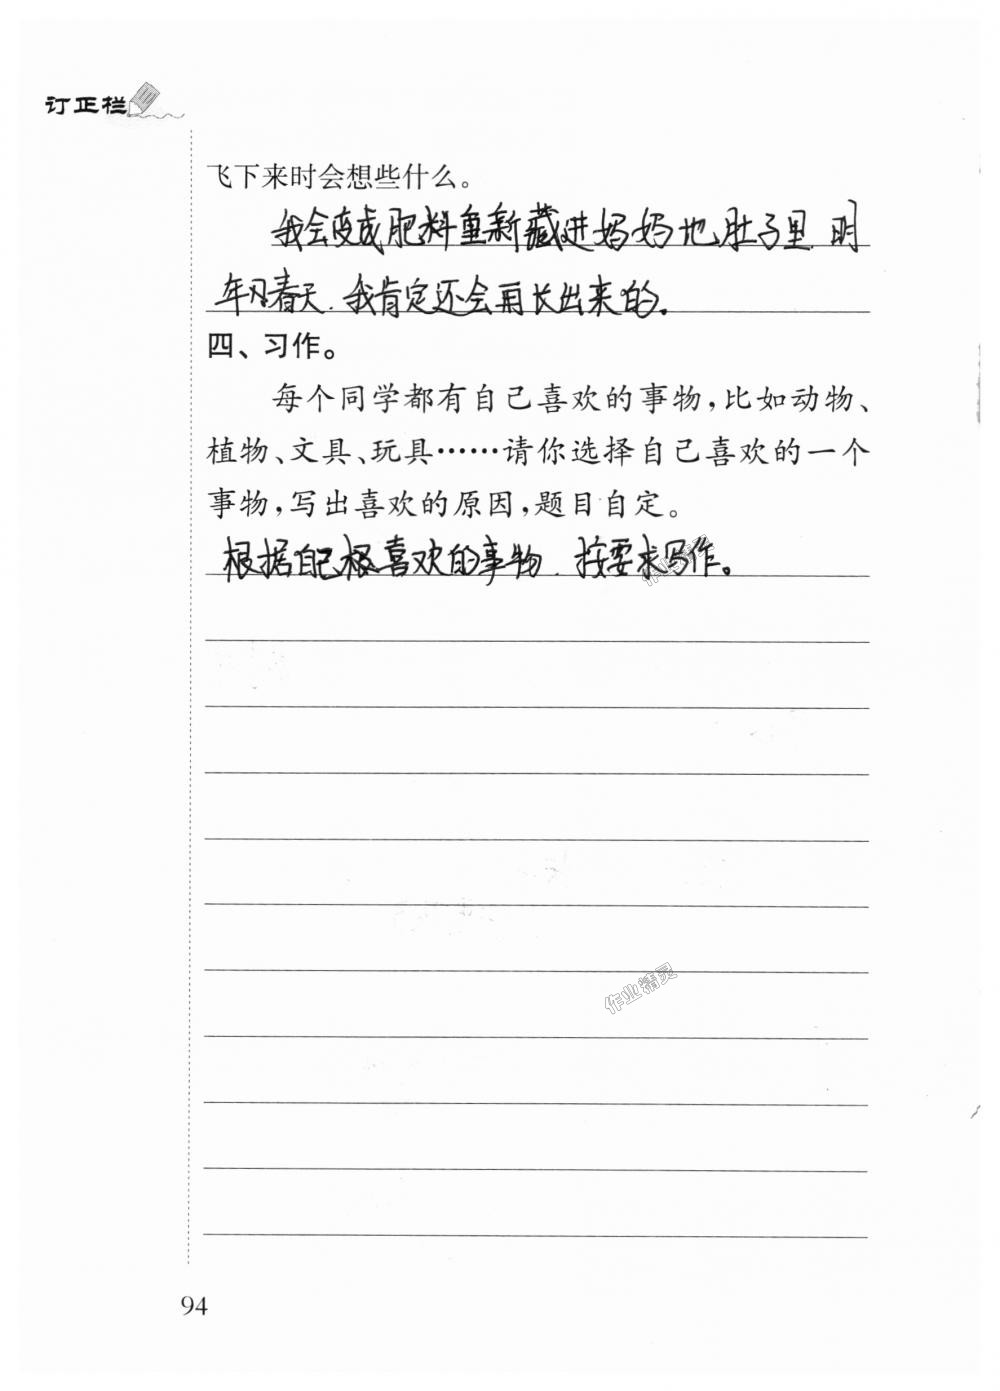 订正栏
飞下来时会想些什么。
我会变成肥料重新藏进妈妈地肚子里.明
年的春天.我肯定还会再长出来的.
四、习作。
每个同学都有自己喜欢的事物,比如动物、
植物、文具、玩具……请你选择自己喜欢的一个
事物,写出喜欢的原因,题目自定。
根据自己根喜欢的事物.按要求写作。
作业精灵
94